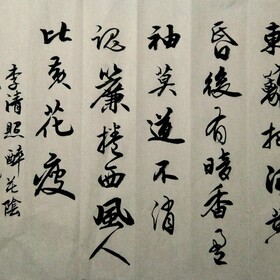 東籬把酒黃
昏後有暗香盈
袖莫道不消
魂簾捲西風人
比黃花瘦
李清照醉花陰